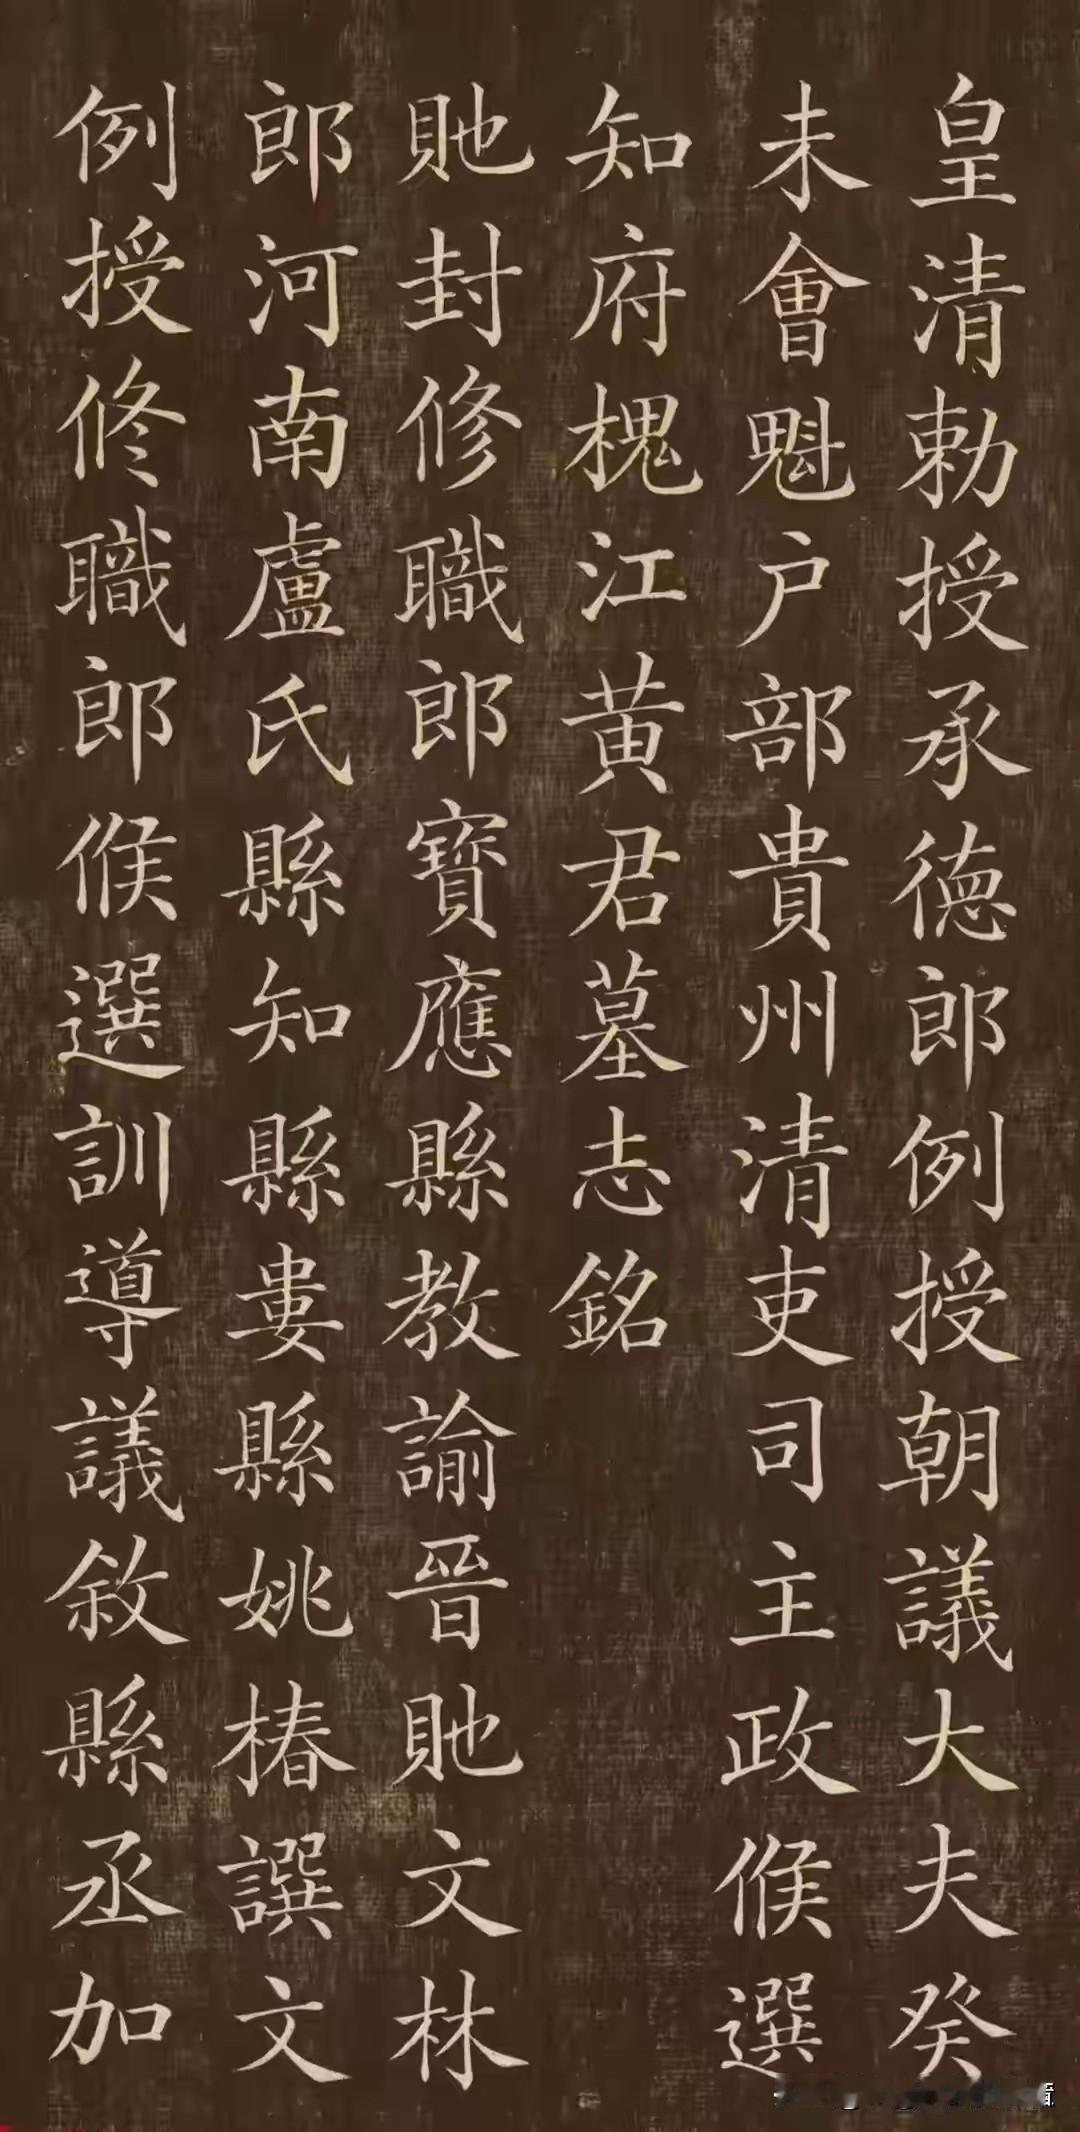 皇清勅授承德郎例授朝議大夫癸
未會魁户部貴州清吏司主政候選
知府槐江黄君墓志銘
貤封修職郎寶應縣教諭晉貤文林
郎河南盧氏縣知縣婁縣姚椿譔文
例授修職郎候選訓導議敘縣丞加